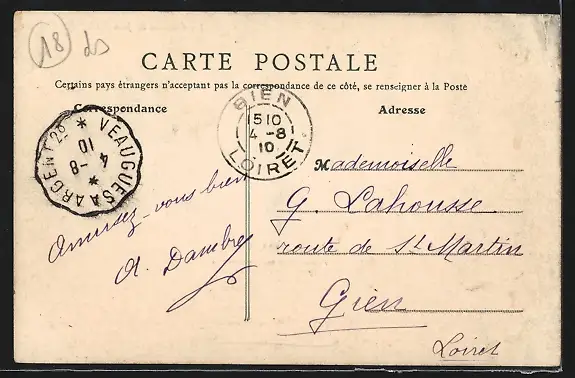 18 ds
CARTE POSTALE
Certains pays étrangers n'acceptant pas la correspondance de ce côté, se renseigner à la Poste
Correspondance
Adresse
VEAUGUES A ARGENT 2º
10
4-8
GIEN
5 10
4-8
10
LOIRET
Amusez-vous bien
A. Dambre
Mademoiselle
G. Lahousse
route de St Martin
Gien
Loiret